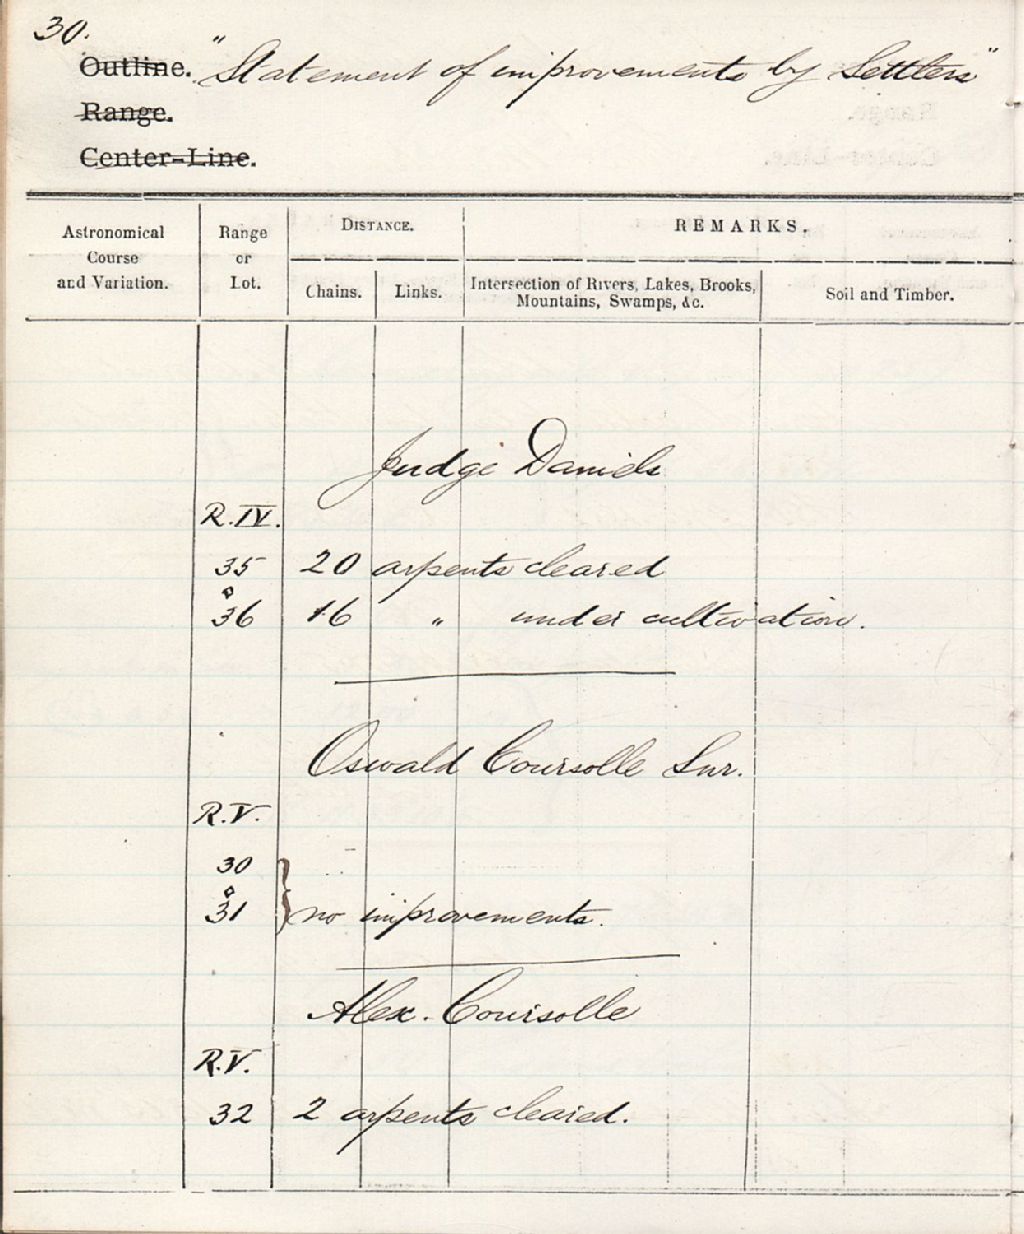 30.
Outline. "Statement of improvements by Settlers"
Range.
Center-Line.
Astronomical Course and Variation.
Range or Lot.
DISTANCE.
REMARKS.
Chains.
Links.
Intersection of Rivers, Lakes, Brooks, Mountains, Swamps, &c.
Soil and Timber.
Judge Daniels
R. IV.
35 20 arpents cleared
&
36 16 " under cultivation.
Oswald Coursolle Snr.
R. V.
30
&
31 } no improvements.
Alex. Coursolle
R. V.
32 2 arpents cleared.